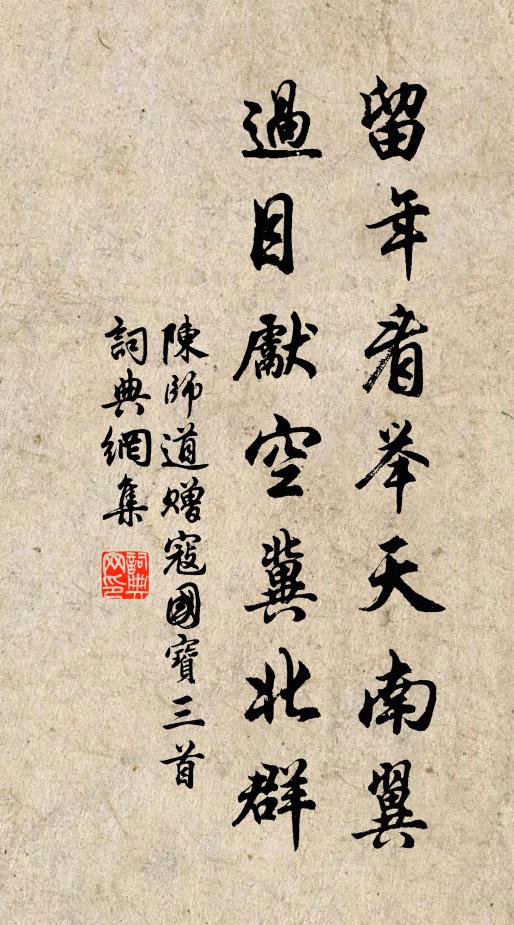 留年看举天南翼
過目獻空冀北群
陳師道贈寇國寶三首
詞典網集
詞典網印